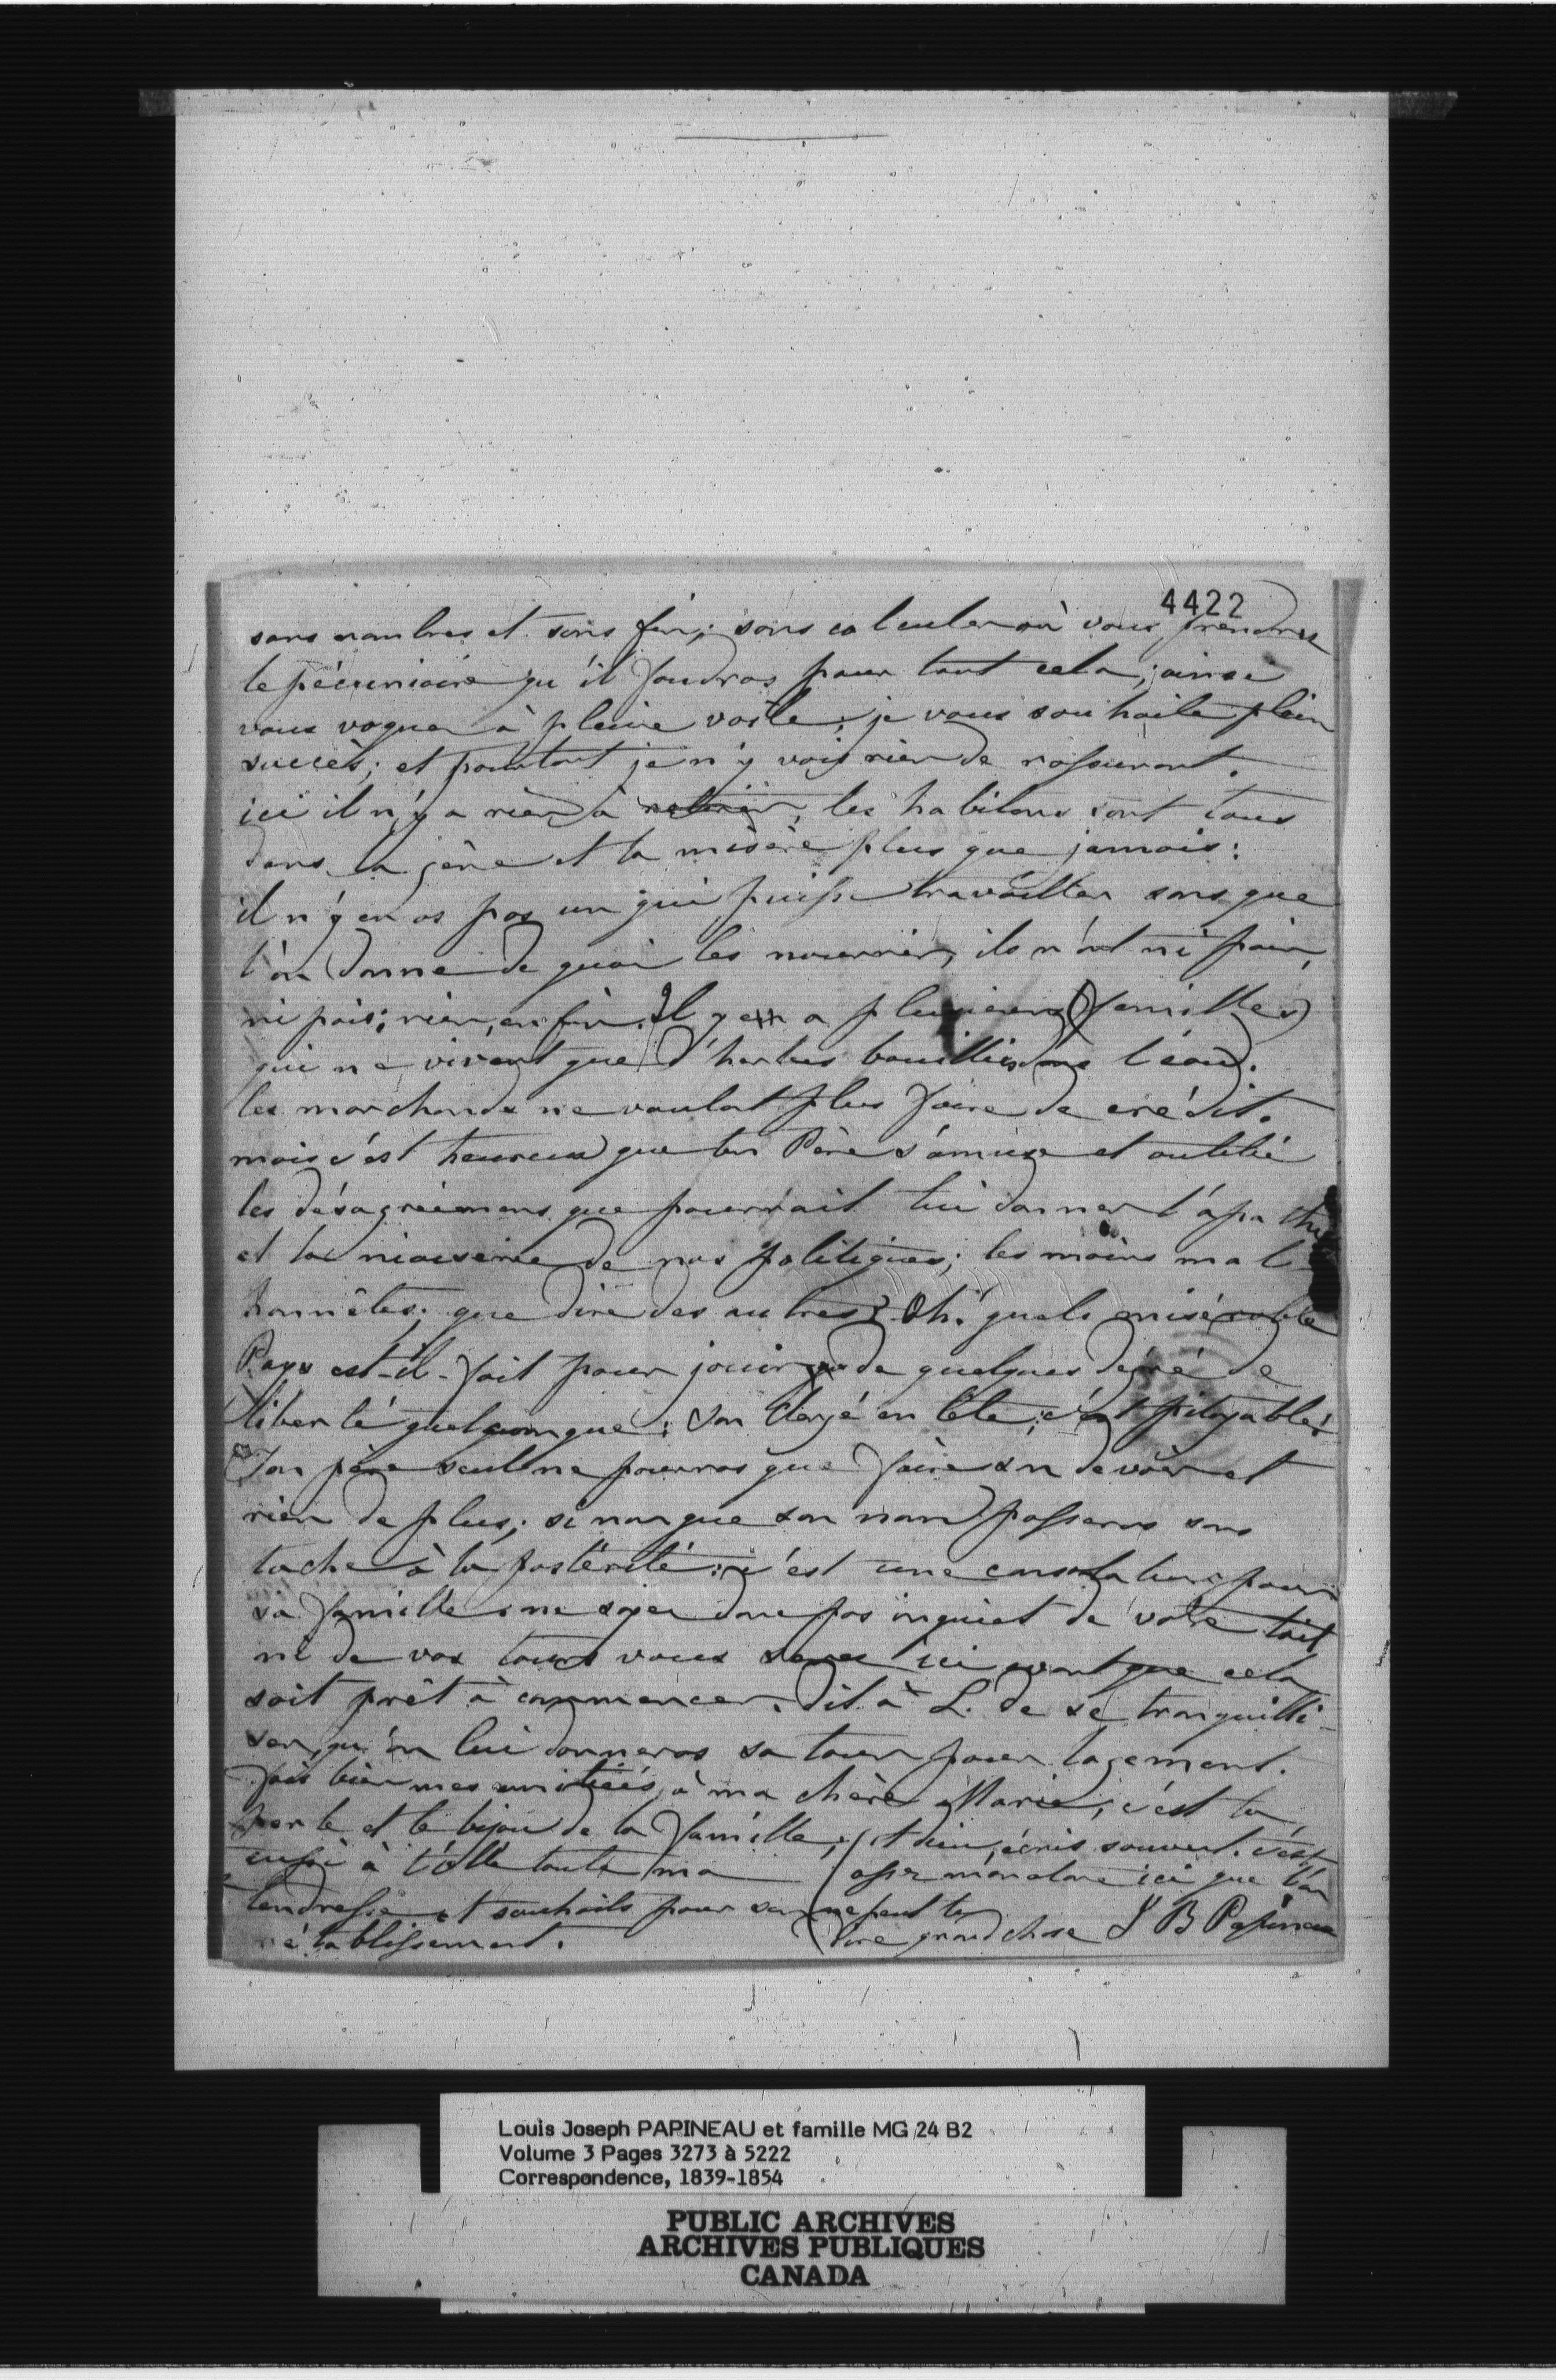 4422
sans nombres et sans fin; sans calculer où vous prendrez
le pécuniaire qu'il foudras pour tout cela; ainsi
vous voguer à pleine voile; je vous souhaite plein
succès; et pourtant je n'y vois rien de rassurant.
ici il n'y a rien à retirer, les habitans sont tous
dans la gène et la misère plus que jamais:
il n'y en as pas un qui puisse travailler sans que
l'on donne de quoi les nourrir, ils n'ont ni pain,
ni pois; rien, enfin. Il y en a plusieurs familles
qui ne vivent que d'herbes bouillis dans l'eau.
les marchands ne voulant plus faire de crédit.
mais c'est heureux que ton Père s'amuse et oublié
les désagréemens que pourrait lui donner l'apathie
et la niaiserie de nos politiques; les moins mal
honnêtes; que dire des autres? Oh! quels misérable
Pays est-il fait pour jouir de quelques degré de
liberté quelconque: son Clergé en tête; c'est pitoyable!
Ton père seul ne pourras que faire son devoir et
rien de plus; sinon que son nom passeras sans
tache à la postérité: c'est une consolation pour
sa famille: ne soyer donc pas inquiet de votre toit
ni de vos tours vous serez ici avant que cela
soit prêt à commencer. Dit à L. de se tranquilli-
ser, qu'on lui donneras sa tour pour logement.
fais bien mes amitiés à ma chère Marie; c'est la
perle et le bijou de la famille;
aussi à t'elle toute ma
tendresse et souhaits pour son
rétablissement.
adieu, écris souvent. c'est
assez monotone ici que l'on
ne peut te
dire grand chose J B Papineau
Louis Joseph PAPINEAU et famille MG 24 B2
Volume 3 Pages 3273 à 5222
Correspondence, 1839-1854
PUBLIC ARCHIVES
ARCHIVES PUBLIQUES
CANADA